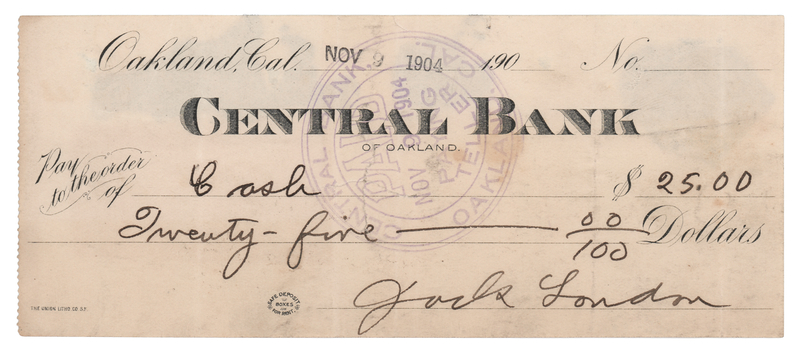 Oakland, Cal. NOV 9 1904 190 No.
CENTRAL BANK
OF OAKLAND.
Pay to the order of Cash $ 25.00
Twenty-five 00/100 Dollars
Jack London
THE UNION LITHO CO. S.F.
SAFE DEPOSIT BOXES FOR RENT
CENTRAL BANK OAKLAND, CAL.
PAID
NOV 9 1904
PAYING TELLER